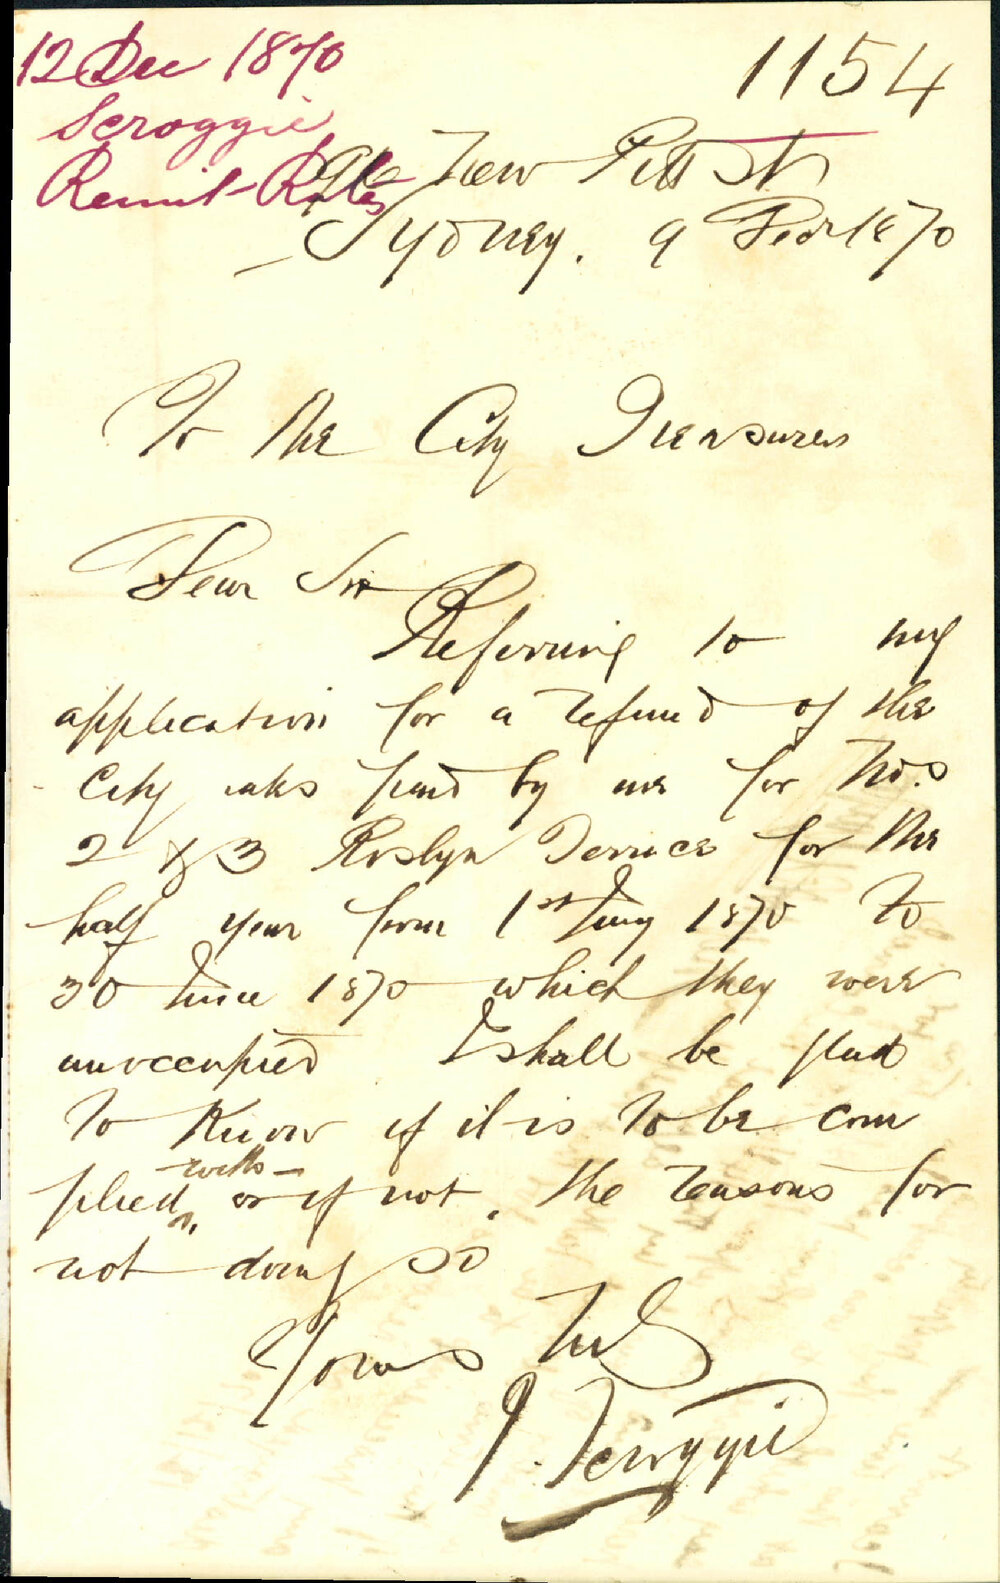 12 Dec 1870
1154
Scroggie
Remit Rates
New Pitt St
Sydney. 9 Decr 1870
To the City Treasurer
Dear Sir
Referring to my
application for a refund of the
City rates paid by me for No.s
2 & 3 Roslyn Terrace for the
half year from 1st Jany 1870 to
30 June 1870 which they were
unoccupied I shall be glad
to know if it is to be com
plied with or if not, the reasons for
not doing so
Yours Truly
J. Scroggie